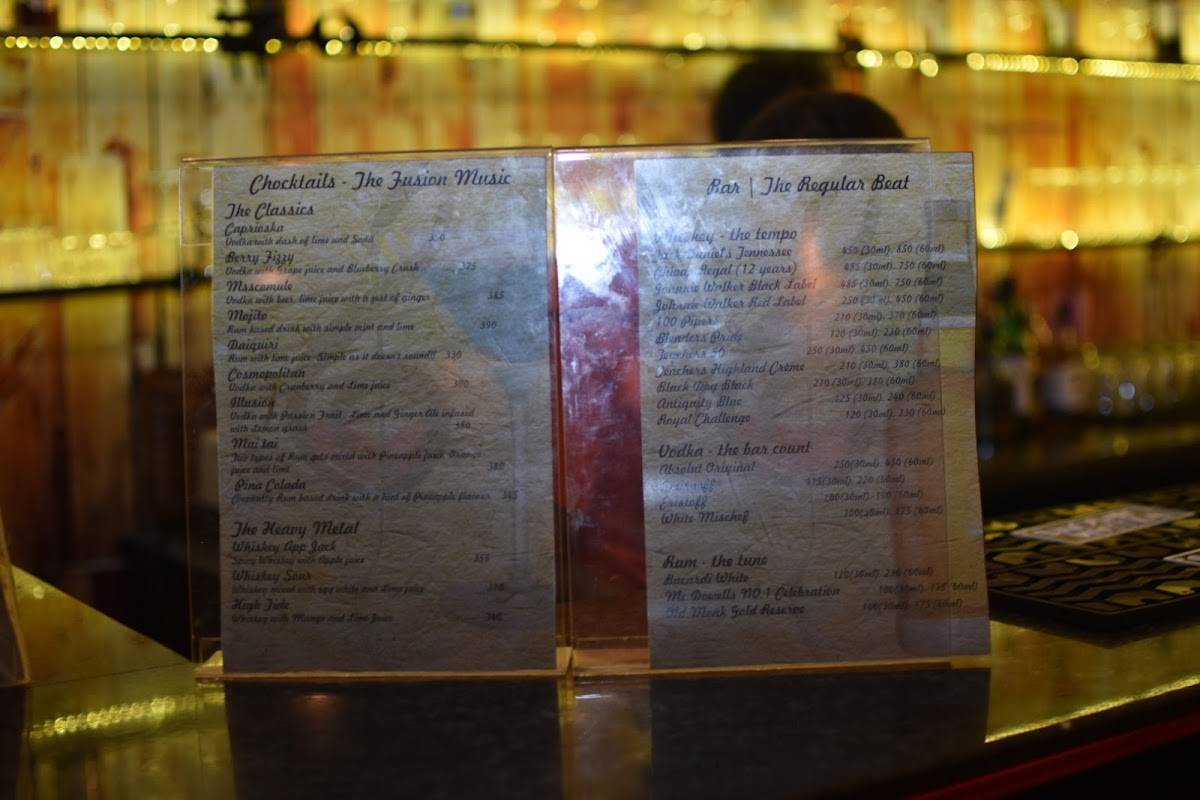 Chocktails - The Fusion Music
The Classics
Caprioska
Vodka with dash of lime and Soda
Berry Fizzy
Vodka with Grape juice and Blueberry Crush 325
Msscomule
Vodka with beer, lime juice with a zest of ginger 385
Mojito
Rum based drink with simple mint and lime 390
Daiquiri
Rum with lime juice. Simple as it doesn't sound!! 330
Cosmopolitan
Vodka with Cranberry and Lime juice 380
Illusion
Vodka with Passion Fruit, Lime and Ginger Ale infused
with Lemon grass 380
Mai tai
Two types of Rum gets mixed with Pineapple juice, Orange
juice and lime 380
Pina Colada
Rum based drink with a hint of Pineapple flavour 385
The Heavy Metal
Whiskey App Jack
Spicy Whiskey with Apple juice 355
Whiskey Sour
Whiskey mixed with egg white and Lime juice
High Tide
Whiskey with Mango and Lime Juice
Bar | The Regular Beat
Whiskey - the tempo
Jack Daniel's Tennessee 450 (30ml). 850 (60ml)
Chivas Regal (12 years) 485 (30ml). 750 (60ml)
Johnnie Walker Black Label 485 (30ml). 750 (60ml)
Johnnie Walker Red Label 250 (30 ml). 450 (60ml)
100 Pipers 210 (30ml). 370 (60ml)
Blenders Pride 120 (30ml). 230 (60ml)
Teachers 50 250 (30ml). 450 (60ml)
Teachers Highland Creme 210 (30ml). 380 (60ml)
Black Dog Black 210 (30ml). 380 (60ml)
Antiquity Blue 125 (30ml). 240 (60ml)
Royal Challenge 120 (30ml). 230 (60ml)
Vodka - the bar count
Absolut Original 250(30ml). 450 (60ml)
Smirnoff 115(30ml). 220 (60ml)
Eristoff 100(30ml). 190 (60ml)
White Mischef 100(30ml). 175 (60ml)
Rum - the tune
Bacardi White 120(30ml). 230 (60ml)
Mc Dowells NO.1 Celebration 100(30ml). 175 (60ml)
Old Monk Gold Reserve 100(30ml). 175 (60ml)